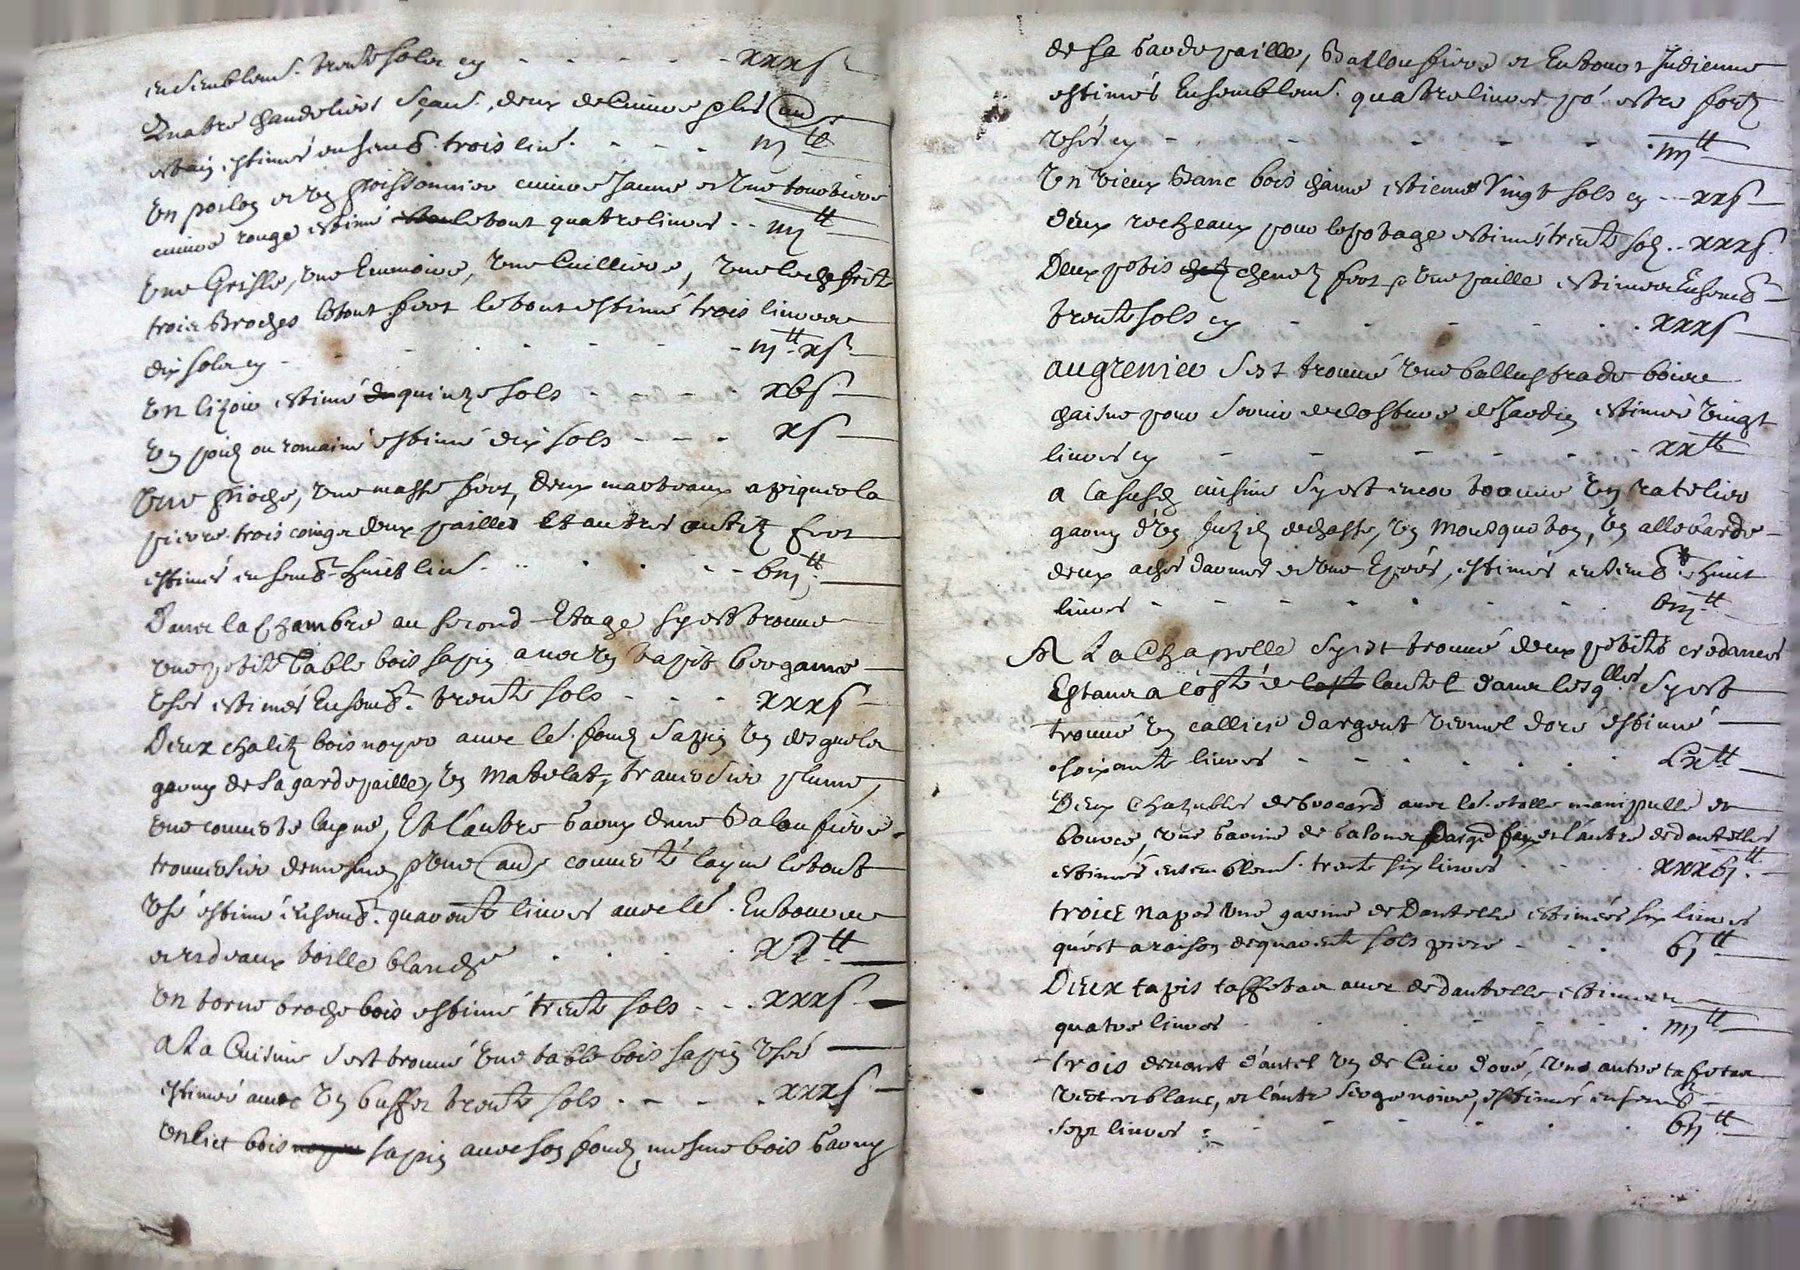 ensemblem.t trente solz cy - - - - - xxxs
Quatre chandeliers sçavr. deux de Cuivre plus aud
estain estimé ensemb. trois liu. - - - iij tt
Un poilon et un poissonnier cuivre Jaune et Une tourtiere
cuivre rouge estimé le tout quatre livres - - iiij tt
Une Grisle, Une , Une Cuilliere, Une lechefrite
trois Broches letout fert le tout estimé trois livres
dix solz cy - - - - - - - iij tt xs
Un estimé quinze sols - - - - xbs
Un poidz ou romaine estimé dix sols - - - xs
Une pioche, Une masse fert, deux marteaux a piquer la
pierre trois coings deux pailles Et autres outilz fert
estimés ensemb. huict liu. - - - - - biij tt
Dans la Chambre au second Etage s'y est trouvé
une petite Table bois sapin avec un tapit bergame
Usés estimés Ensemb. trente sols - - - xxxs
Deux chalitz bois noyer avec les fondz sapin Un desquels
garny de sa gardepaille, Un Matelat, traversier plume,
Une couverte laigne, Et l'autre garny dune Balouffiere
traversier plume aude couverte laine letout
Usé estimé Ensemb. quarante livres avec les Entours
et rideaux toille blanche - - - - xL tt
Un torne broche bois estimé trente sols - - xxxs
A La Cuisine s'est trouvé Une table bois sapin Usée
estimée avec Un buffet trente sols - - - - xxxs
Un lict bois sapin avec son fondz mesme bois garny
de sa gardepaille, Ballouffiere et Entour Indienne
estimés Ensemblem.t quatre livres pr estre fortz
Usés cy - - - - - - iiij tt
Un vieux Banc bois chaine estiemé Vingt sols cy - - xxs
deux recheaux pour le potage estimés trente solz - - xxxs
Deux petis chenetz fert Une paille estimées Ensemb.
trente sols cy - - - - - xxxs
au grenier s'est trouvé Une ballustrade boire
chaisne pour servir de closture de Jardin estimée vingt
livres cy - - - - - - xx tt
a la susd. cuisine s'y est encor trouvé Un ratelier
garny d'Un fuzil de chasse, Un Mousqueton, Un allebarde
deux d'armes et Une Epées, estimés ensemb. huict
livres - - - - - - - - biij tt
A La Chappelle s'y est trouvé deux petites credances
Estans a costé de lautel dans lesqlles s'y est
trouvé Un callice d'argent vermel doré estimé
soixante livres - - - - - - Lx tt
Deux Chazubles de brocard avec les estolle manippulle et
bource, Une garnie de galons d'argt faux et l'autre de dantelles
estimés ensemblem. trente six livres - - xxxbj tt
trois napes Une garnie de Dantelle estimées six livres
qu'est a raison de quarante sols piece - - - bj tt
Deux tapis taffetas avec de dantelle estimees
quatre livres - - - - - - iiij tt
trois devant d'autel Un de Cuir doré, Un autre taffetas
vert et blanc, et l'autre serge noire, estimés ensemb.
sept livres - - - - - - bij tt